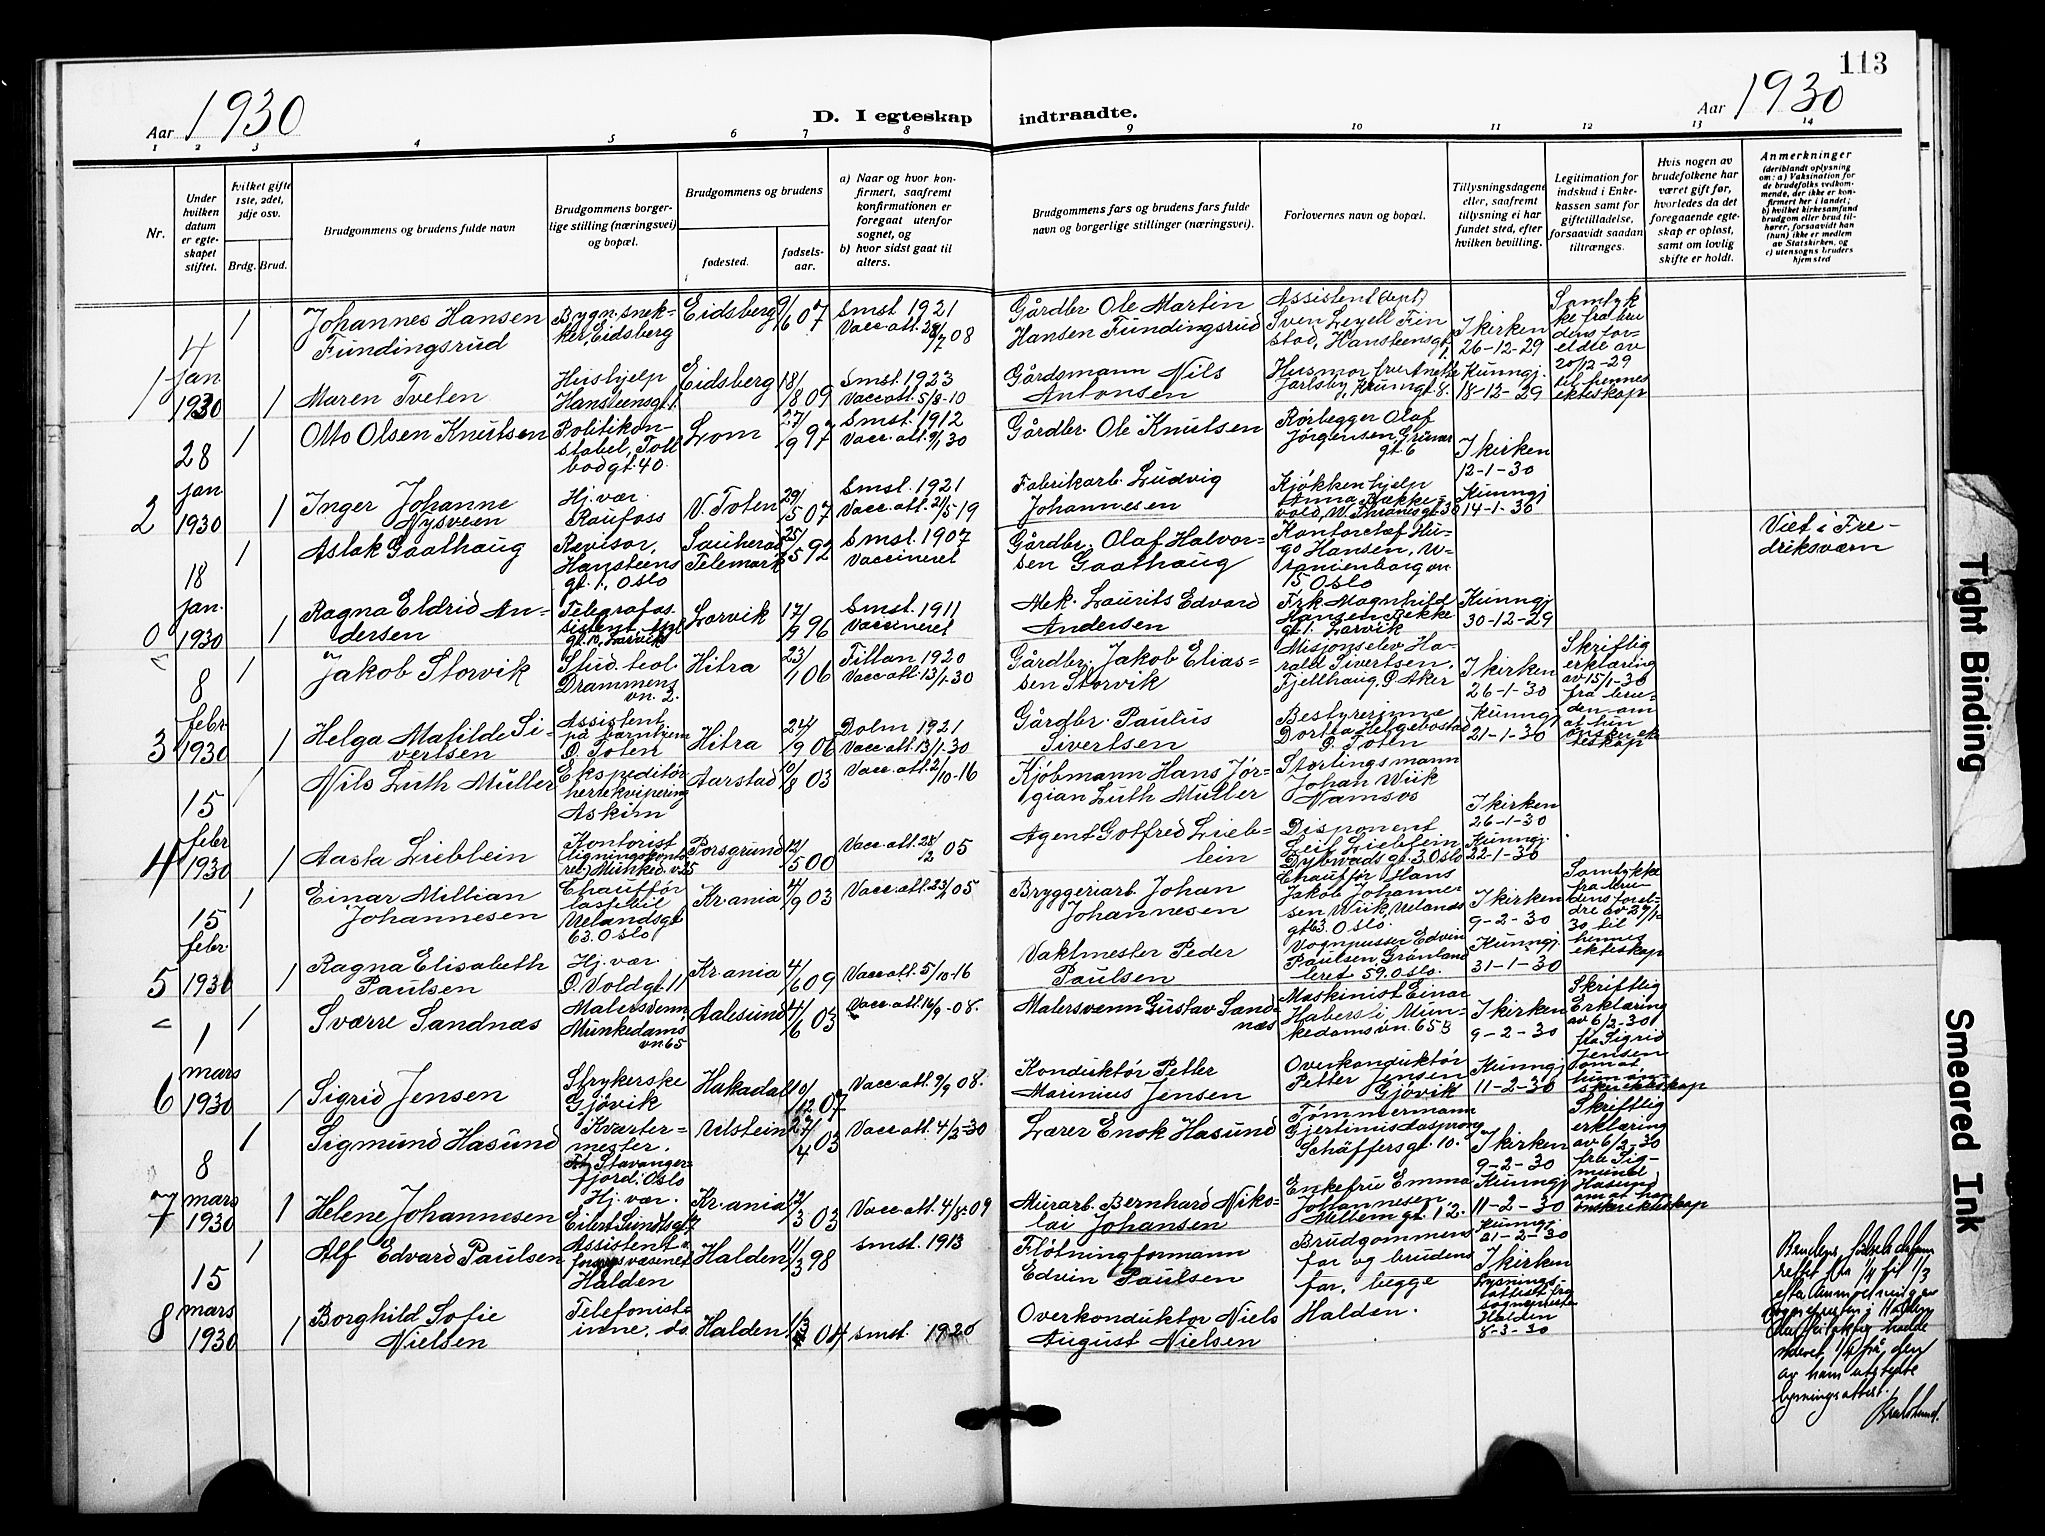 113
Aar 1930
D. I egteskap indtraadte.
Aar 1930
1 2 3 4 5 6 7 8 9 10 11 12 13 14
Nr.
Under hvilken datum er egteskapet stiftet.
hvilket gifte 1ste, 2det, 3dje osv.
Brdg. Brud.
Brudgommens og brudens fulde navn
Brudgommens borgerlige stilling (næringsvei) og bopæl.
Brudgommens og brudens
fødested.
fødselsaar.
a) Naar og hvor konfirmert, saafremt konfirmationen er foregaat utenfor sognet, og
b) hvor sidst gaat til alters.
Brudgommens fars og brudens fars fulde navn og borgerlige stillinger (næringsvei).
Forlovernes navn og bopæl.
Tillysningsdagene eller, saafremt tillysning ei har fundet sted, efter hvilken bevilling.
Legitimation for indskud i Enkekassen samt for giftetilladelse, forsaavidt saadan tiltrænges.
Hvis nogen av brudefolkene har været gift før, hvorledes da det foregaaende egteskap er opløst, samt om lovlig skifte er holdt.
Anmerkninger
(deriblandt oplysning om: a) Vaksination for de brudefolks vedkommende, der ikke er konfirmert her i landet; b) hvilket kirkesamfund brudgom eller brud tilhører, forsaavidt han (hun) ikke er medlem av Statskirken, og c) utensogns bruders hjemsted
1
4 jan 1930
1
Johannes Hansen Fundingsrud
Bygn.snekker, Eidsberg
Eidsberg
9/6 07
Smst. 1921
Vacc.att. 28/7 08
Gårdbr. Ole Martin Hansen Fundingsrud
Assistent (dept) Sven Leyell Finstad, Hansteensgt. 1.
I kirken 26-12-29
Samtykke fra brudens foreldre av 20/12-29 til hennes ekteskap
1
Maren Tveten
Hushjelp Hansteensgt. 1.
Eidsberg
18/8 09
Smst. 1923
Vacc.att. 5/8-10
Gårdsmann Nils Antonsen
Husmor fru Anethe Jarlsby, Kruungt. 8.
Kunngj. 18-12-29
2
28 jan 1930
1
Otto Olsen Knutsen
Politikonstabel, Tollbodgt. 40.
Lom
27/9 97
Smst. 1912
Vacc.att. 9/1 30
Gårdbr. Ole Knutsen
Rørlegger Olaf Jørgensen, Grünergt. 6
I kirken 12-1-30
1
Inger Johanne Nysveen
Hj. vær. Raufoss
V. Toten
29/5 07
Smst. 1921
Vacc.att. 21/5-19
Fabrikarb. Ludvig Johannesen
Kjøkkenhjelp Anna Bakkevold, W. Thranesgt. 30
Kunngj. 14-1-30
0
18 jan. 1930
1
Aslak Gaathaug
Revisor, Hansteensgt. 1, Oslo
Sauherad Telemark
25/5 92
Smst. 1907
Vaccineret
Gårdbr. Olaf Halvorsen Gaathaug
Kontorchef Hugo Hansen, Uranienborgvn. 15 Oslo
Viet i Fredriksværn
1
Ragna Eldrid Andersen
Telegrafassistent
gt. 10, Larvik
Larvik
17/9 96
Smst. 1911
Vaccineret
Mek. Laurits Edvard Andersen
Frk. Magnhild Hansen, Bekkegt. 1. Larvik
Kunngj 30-12-29
3
8 febr 1930
1
Jakob Storvik
Stud. teol. Drammensvn. 2.
Hitra
23/1 06
Fillan 1920
Vacc.att. 13/1-30
Gårdbr. Jakob Eliassen Storvik
Misjonselev Harald Sivertsen, Fjellhaug, Ø. Aker
I kirken 26-1-30
Skriftlig erklæring av 15/1-30 fra bruden om at hun ønsker ekteskap
1
Helga Matilde Sivertsen
Assistent på barnhjem Ø. Toten
Hitra
24/9 06
Dolm 1921
Vacc.att. 13/1-30
Gårdbr. Paulus Sivertsen
Bestyrerinne Dortea Helgebostad Ø. Toten
Kunngj 21-1-30
4
15 febr 1930
1
Nils Luth Müller
Ekspeditør herrekvipering Askim
Aarstad
10/8 03
Vacc.att. 2/10-16
Kjøbmann Hans Jørgian Luth Müller
Stortingsmann Johan Wiik Namsos
I kirken 26-1-30
1
Aasta Lieblein
Kontorist ligningskontoret, Munked.v. 25
Porsgrund
12/5 00
Vacc.att. 28/2 05
Agent Gotfred Lieblein
Disponent Leif Lieblein Dybwadsgt. 3 Oslo
Kunngj. 22-1-30
5
15 febr. 1930
1
Einar Millian Johannesen
Chauffør lastebil Uelandsgt 63. Oslo
Kr.ania
4/9 03
Vacc.att. 23/1 05
Bryggeriarb. Johan Johannesen
Chauffør Hans Jakob Johannesen Wiik, Uelandsgt 63. Oslo.
I kirken 9-2-30
Samtykke fra brudens foreldre av 27/1-30 til hennes ekteskap
1
Ragna Elisabeth Paulsen
Hj. vær. Ø. Voldgt. 11
Kr.ania
4/6 09
Vacc.att. 5/10-16
Vaktmester Peder Paulsen
Vognpusser Edvin Paulsen, Grønlandsleret 59. Oslo.
Kunngj. 31-1-30
6
1 mars 1930
1
Sverre Sandnæs
Malersvenn Munkedamsvn. 65
Aalesund
4/6 03
Vacc.att. 16/9-08.
Malersvenn Gustav Sandnæs
Maskinist Einar Habersli, Munkedamsvn. 65 B
I kirken 9-2-30
Skriftlig Erklæring av 6/2-30 fra Sigrid Jensen om at hun ønsker ekteskap
1
Sigrid Jensen
Strykerske Gjøvik
Hakadal
10/12 07
Vacc.att. 9/9 08.
Konduktør Petter Marinius Jensen
Overkonduktør Petter Jensen Gjøvik
Kunngj 11-2-30
7
8 mars 1930
1
Sigmund Hasund
Kvartermester, Stavangerfjord. Oslo
Ulstein
27/4 03
Vacc.att. 4/2-30
Lærer Enok Hasund
Tømmermann Gjertinius Aaspvong Schäffersgt. 10.
I kirken 9-2-30
Skriftlig erklæring av 6/2-30 fra Sigmund Hasund om at han ønsker ekteskap
1
Helene Johannesen
Hj. vær. Eilert Sundsgt.
Kr.ania
12/3 03
Vacc.att. 4/8-09
Murarb. Bernhard Nikolai Johansen
Enkefru Emma Johannesen, Meltzersgt. 12.
Kunngj 11-2-30
8
15 mars 1930
1
Alf Edvard Paulsen
Assistent v. forsorgsvæsenet Halden
Halden
11/3 98
smst. 1913
Fløtningformann Edvin Paulsen
Brudgommens far og brudens far, begge Halden.
Kunngj. 21-2-30
I kirken
Lysningsattest fra sogneprsten Halden 8-3-30
1
Borghild Sofie Nielsen
Telefonistinne, do
Halden
1/3 04
smst. 1920
Overkonduktør Niels August Nielsen
Brudens fødselsdatum rettet fra 1/4 til 1/3 efter anmodning av sognepresten i Halden
av ham utstedte lysningsattest.
Tight Binding
Smeared Ink